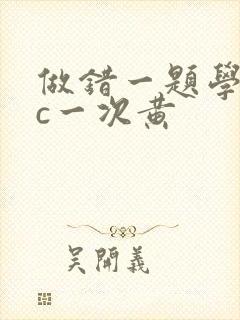 做錯一題學
c一次黄
吴開義